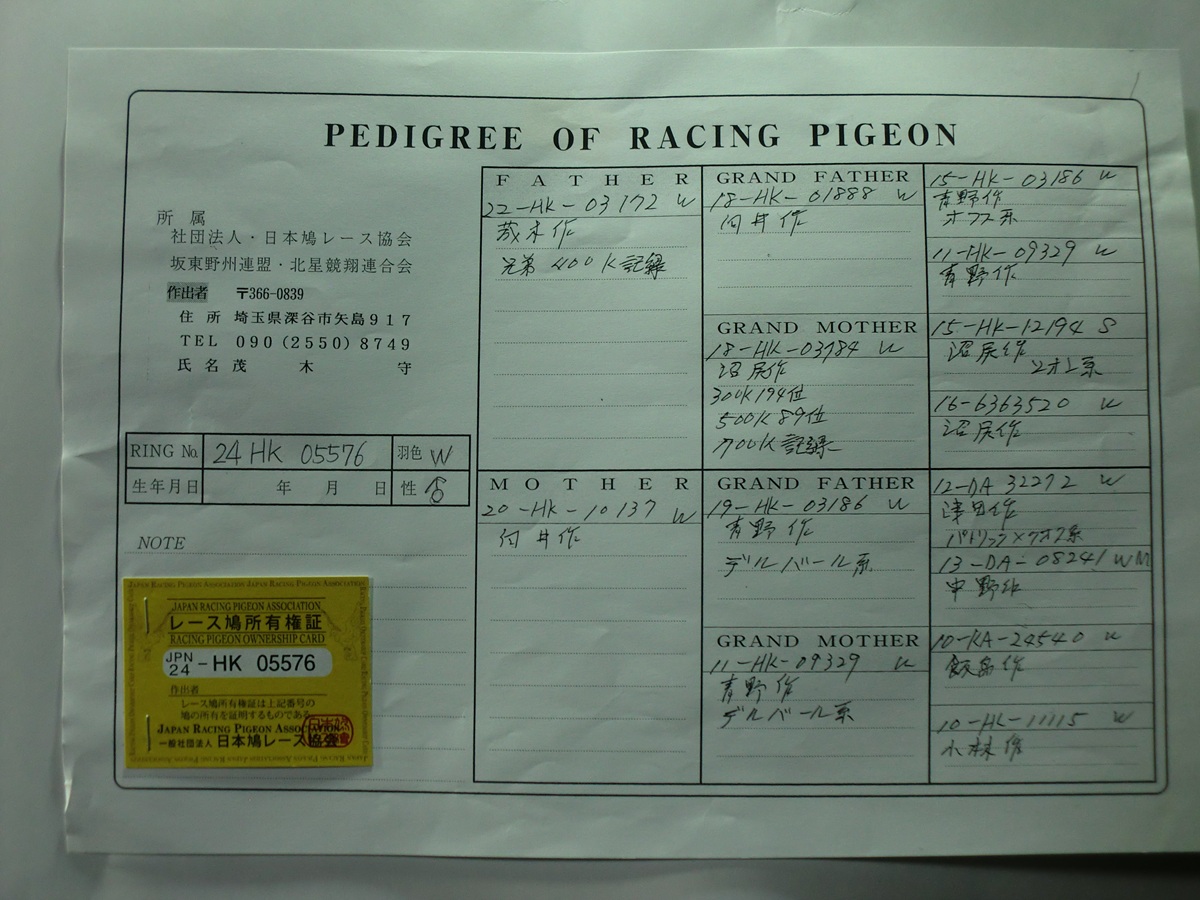 PEDIGREE OF RACING PIGEON
所属
社団法人・日本鳩レース協会
坂東野州連盟・北星競翔連合会
作出者 〒366-0839
住所 埼玉県深谷市矢島917
TEL 090(2550)8749
氏名 茂木 守
RING No. 24 HK 05576 羽色 W
生年月日 年 月 日 性 ♂
NOTE
JAPAN RACING PIGEON ASSOCIATION
レース鳩所有権証
RACING PIGEON OWNERSHIP CARD
JPN 24 - HK 05576
作出者
レース鳩所有権証は上記番号の
鳩の所有を証明するものである
JAPAN RACING PIGEON ASSOCIATION
一般社団法人 日本鳩レース協会
FATHER
22-HK-03172 W
茂木作
兄弟 400K記録
MOTHER
20-HK-10137 W
向井作
GRAND FATHER
18-HK-01888 W
向井作
GRAND MOTHER
18-HK-03784 W
沼尻作
300K194位
500K89位
700K記録
GRAND FATHER
19-HK-03186 W
青野作
デルバール系
GRAND MOTHER
11-HK-09329 W
青野作
デルバール系
15-HK-03186 W
青野作
オフス系
11-HK-09329 W
青野作
15-HK-12194 S
沼尻作
シオン系
16-6363520 W
沼尻作
12-DA 32272 W
作
13-DA-08241 WM
中野作
10-KA-24540 W
飯島作
10-HK-11115 W
小林作